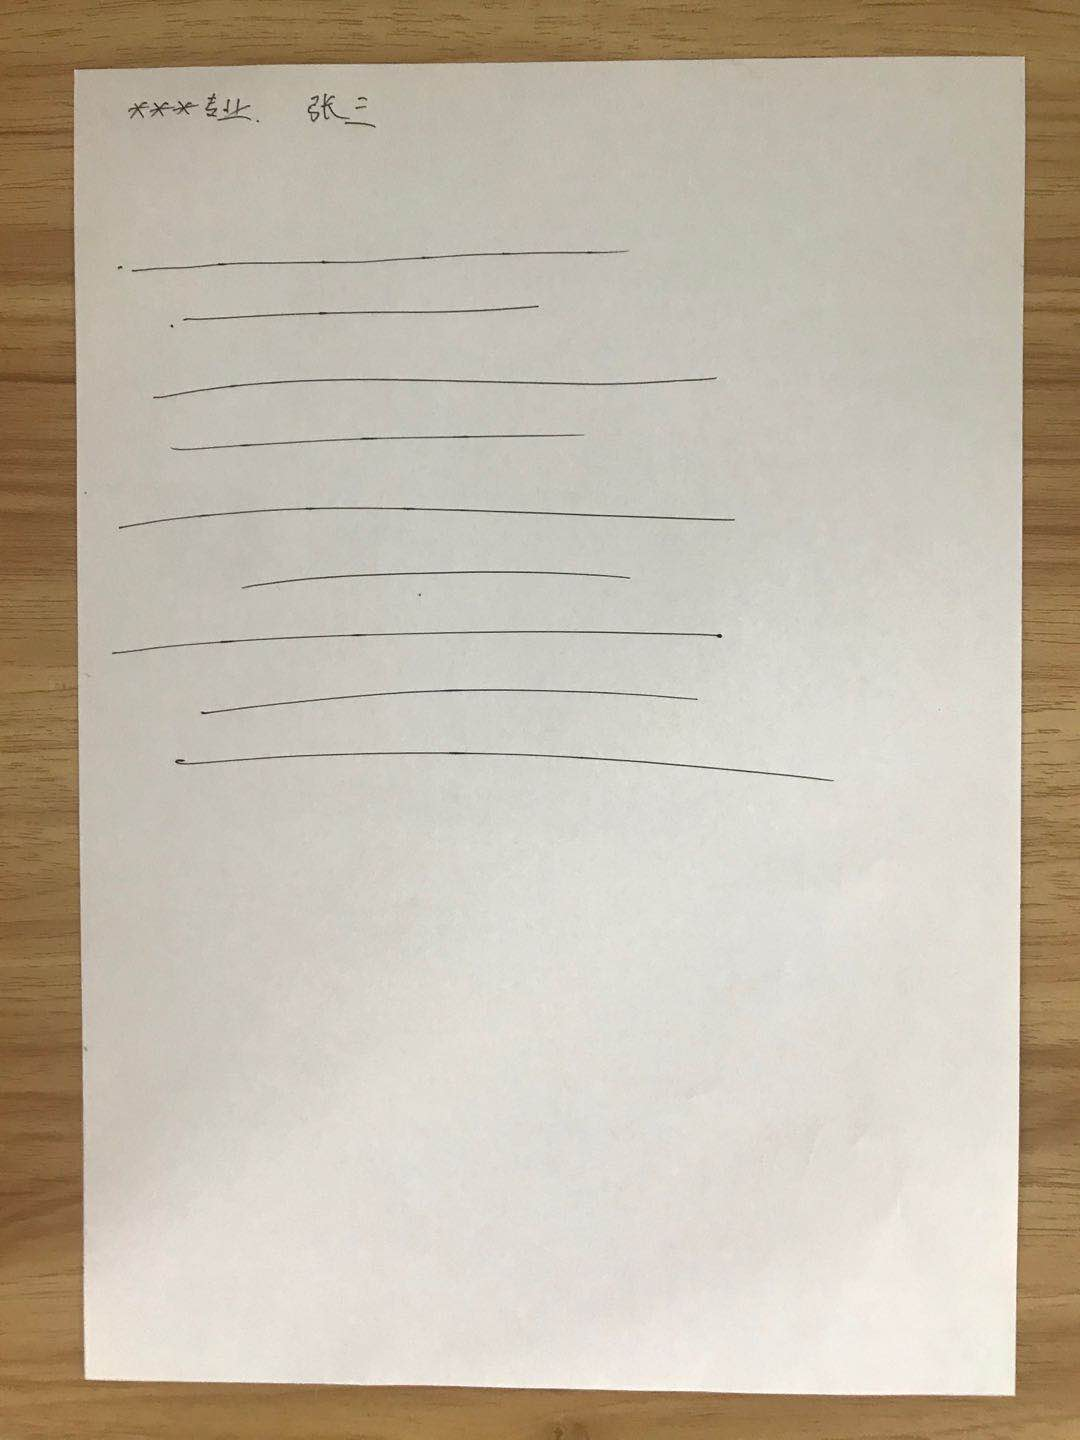 ***专业. 张三